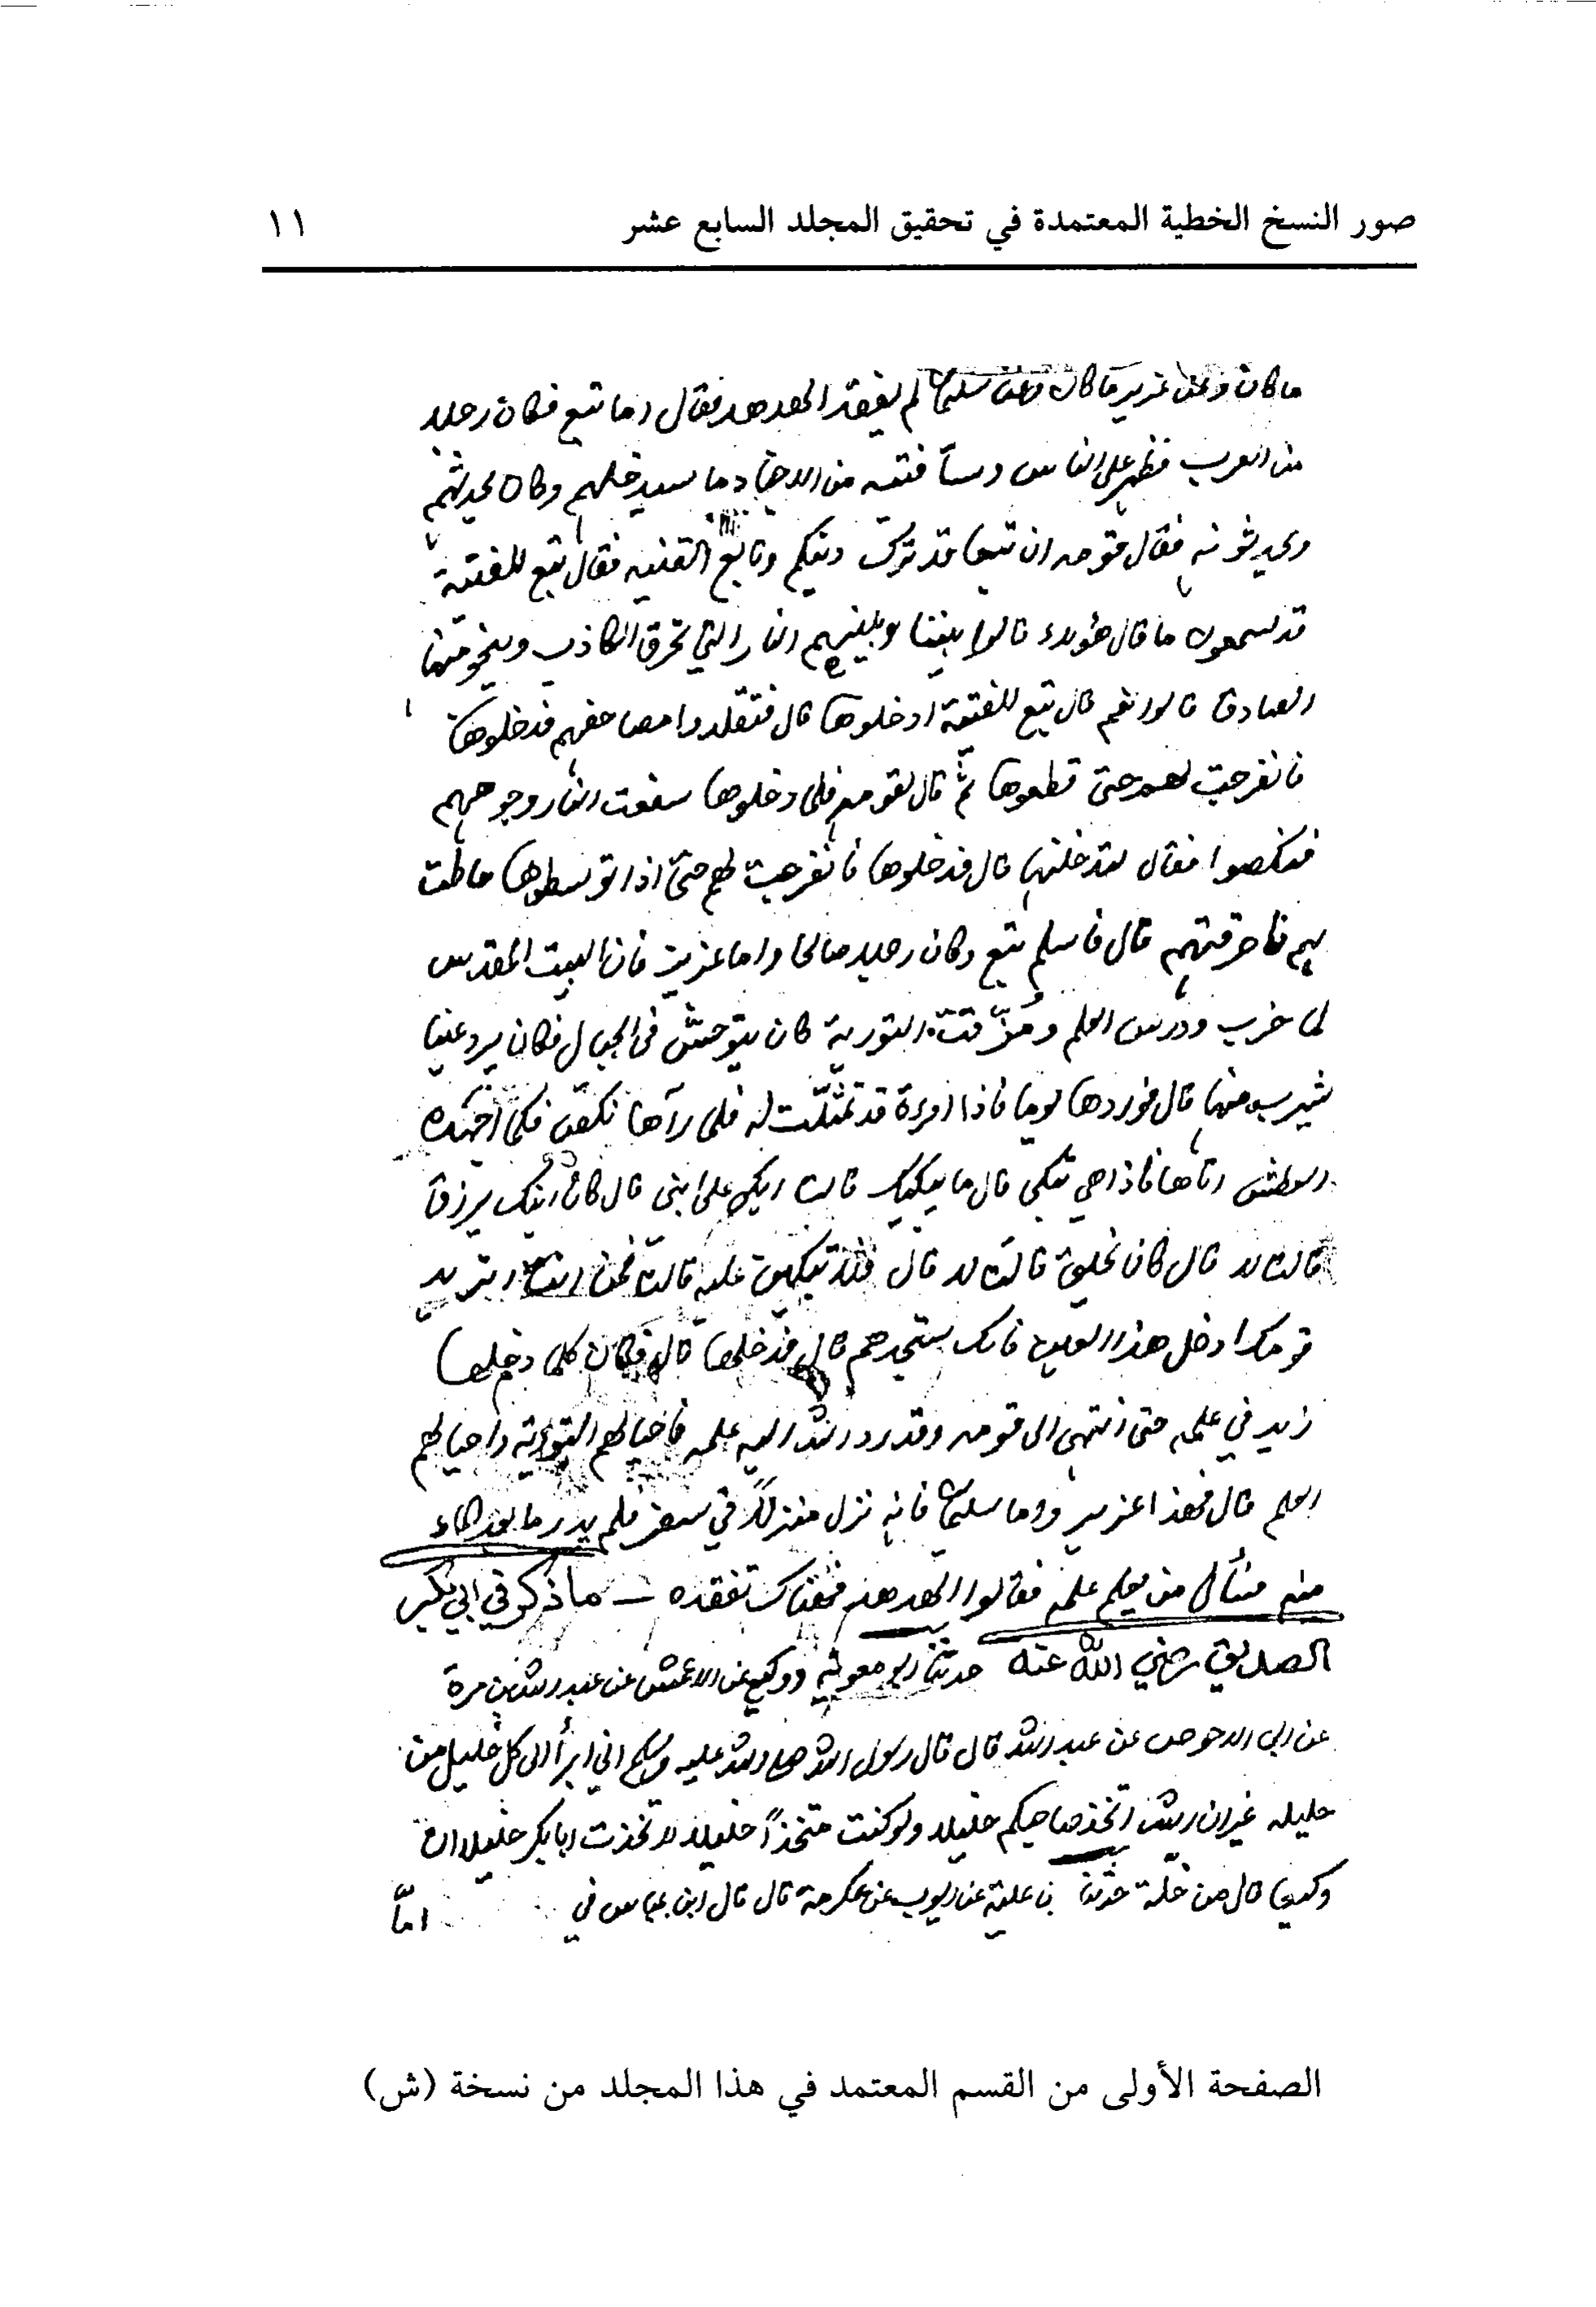 صور النسخ الخطية المعتمدة في تحقيق المجلد السابع عشر ١١
ما كان وعن عزير ما كان وعن سليمان لم يفقد الهدهد فقال اما تبع فكان رجلا
من العرب فظهر على الناس وسبا فتية من الاحبار فاستدخلهم وكان يحدثهم
ويحدثونه فقال قومه ان تبعا قد ترك دينكم وتابع الفتية فقال تبع للفتية
قد تسمعون ما قال هؤلاء قالوا بيننا وبينهم النار التي تحرق الكاذب وينجو منها
الصادق قالوا نعم قال تبع للفتية ادخلوها قال فتقلدوا مصاحفهم فدخلوها
فانفرجت لهم حتى قطعوها ثم قال لقومه فلما دخلوها سفعت النار وجوههم
فنكصوا فقال لتدخلنها قال فدخلوها فانفرجت لهم حتى اذا توسطوها احاطت
بهم فاحرقتهم قال فاسلم تبع وكان رجلا صالحا واما عزير فان البيت المقدس
لما خرب ودرس العلم ومُزّقت التورية كان يتوحش في الجبال فكان يرد عينا
يشرب منها قال فوردها يوما فاذا امرءة قد تمثّلت له فلما رآها نكص فلما اجهده
العطش اتاها فاذا هي تبكي قال ما يبكيك قالت ابكي على ابني قال كان ابنك يرزق
قالت لا قال كان يخلق قالت لا قال فلا تبكين عليه قالت فمن انت اتريد
قومك ادخل هذه العين فانك ستجدهم قال فدخلها قال فكان كلما دخلها
زيد في علمه حتى انتهى الى قومه وقد رد الله اليه علمه فاحيا لهم التورية واحيا لهم
العلم قال فهذا عزير واما سليمان فانه نزل منزلا في سفر فلم يدر ما بعد الماء
منه فسأل من يعلم علمه فقالوا الهدهد فهناك تفقده ــ ما ذكر في ابي بكر
الصديق رضي الله عنه حدثنا ابو معوية ووكيع عن الاعمش عن عبد الله بن مرة
عن ابي الاحوص عن عبد الله قال قال رسول الله صلى الله عليه وسلم اني ابرأ الى كل خليل من
خليله غير ان الله اتخذ صاحبكم خليلا ولو كنت متخذاً خليلا لاتخذت ابا بكر خليلا الا ان
وكيعا قال من خلّة حدثنا بن علية عن ايوب عن عكرمة قال قال ابن عباس في
امّا
الصفحة الأولى من القسم المعتمد في هذا المجلد من نسخة (ش)